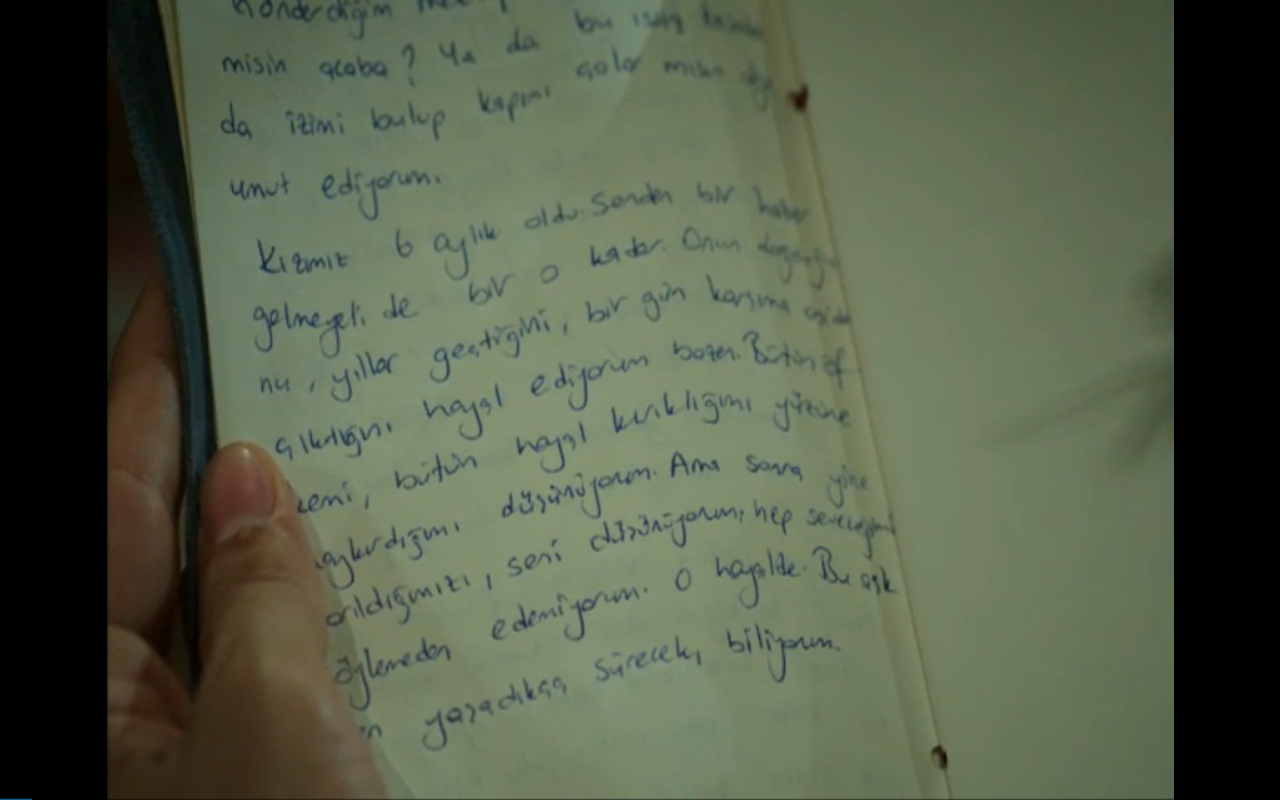 gönderdiğim
misin acaba? Ya da bu
da izimi bulup kapımı çalar mısın diye
umut ediyorum.
Kızımız 6 aylık oldu. Senden bir haber
gelmeyeli de bir o kadar. Onun doğduğu
nu, yıllar geçtiğini, bir gün karşıma çıkıp
çıktığını hayal ediyorum bazen. Bütün öf
kemi, bütün hayal kırıklığımı yüzüne
haykırdığımı düşünüyorum. Ama sonra yine
sarıldığımızı, seni düşünüyorum, hep seveceğimi
söylemeden edemiyorum. O hayalde. Bu aşk
ben yaşadıkça sürecek, biliyorum.